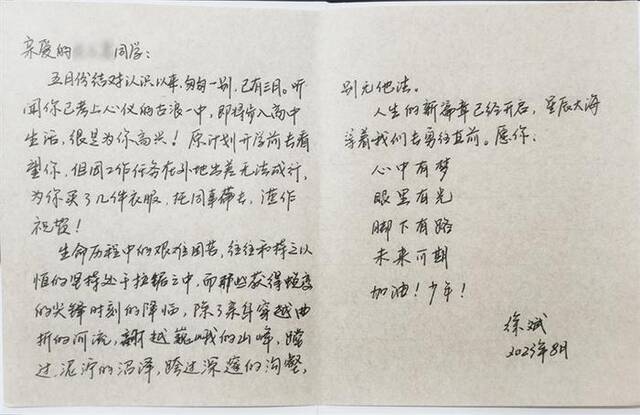 亲爱的 同学：
五月份结对认识以来，匆匆一别，已有三月。听
闻你已考上心仪的古浪一中，即将步入高中
生活，很是为你高兴！原计划开学前去看
望你，但因工作任务在外地出差无法成行，
为你买了几件衣服，托同事带去，渣作
祝贺！
生命历程中的艰难困苦，往往和持之以
恒的坚持处于拉锯之中，而那些获得蜕变
的尖锋时刻的降临，除了亲身穿越曲
折的河流，翻越巍峨的山峰，蹚
过泥泞的沼泽，跨过深邃的沟壑，
别无他法。
人生的新篇章已经开启，星辰大海
等着我们去勇往直前。愿你：
心中有梦
眼里有光
脚下有路
未来可期
加油！少年！
徐斌
2023年8月